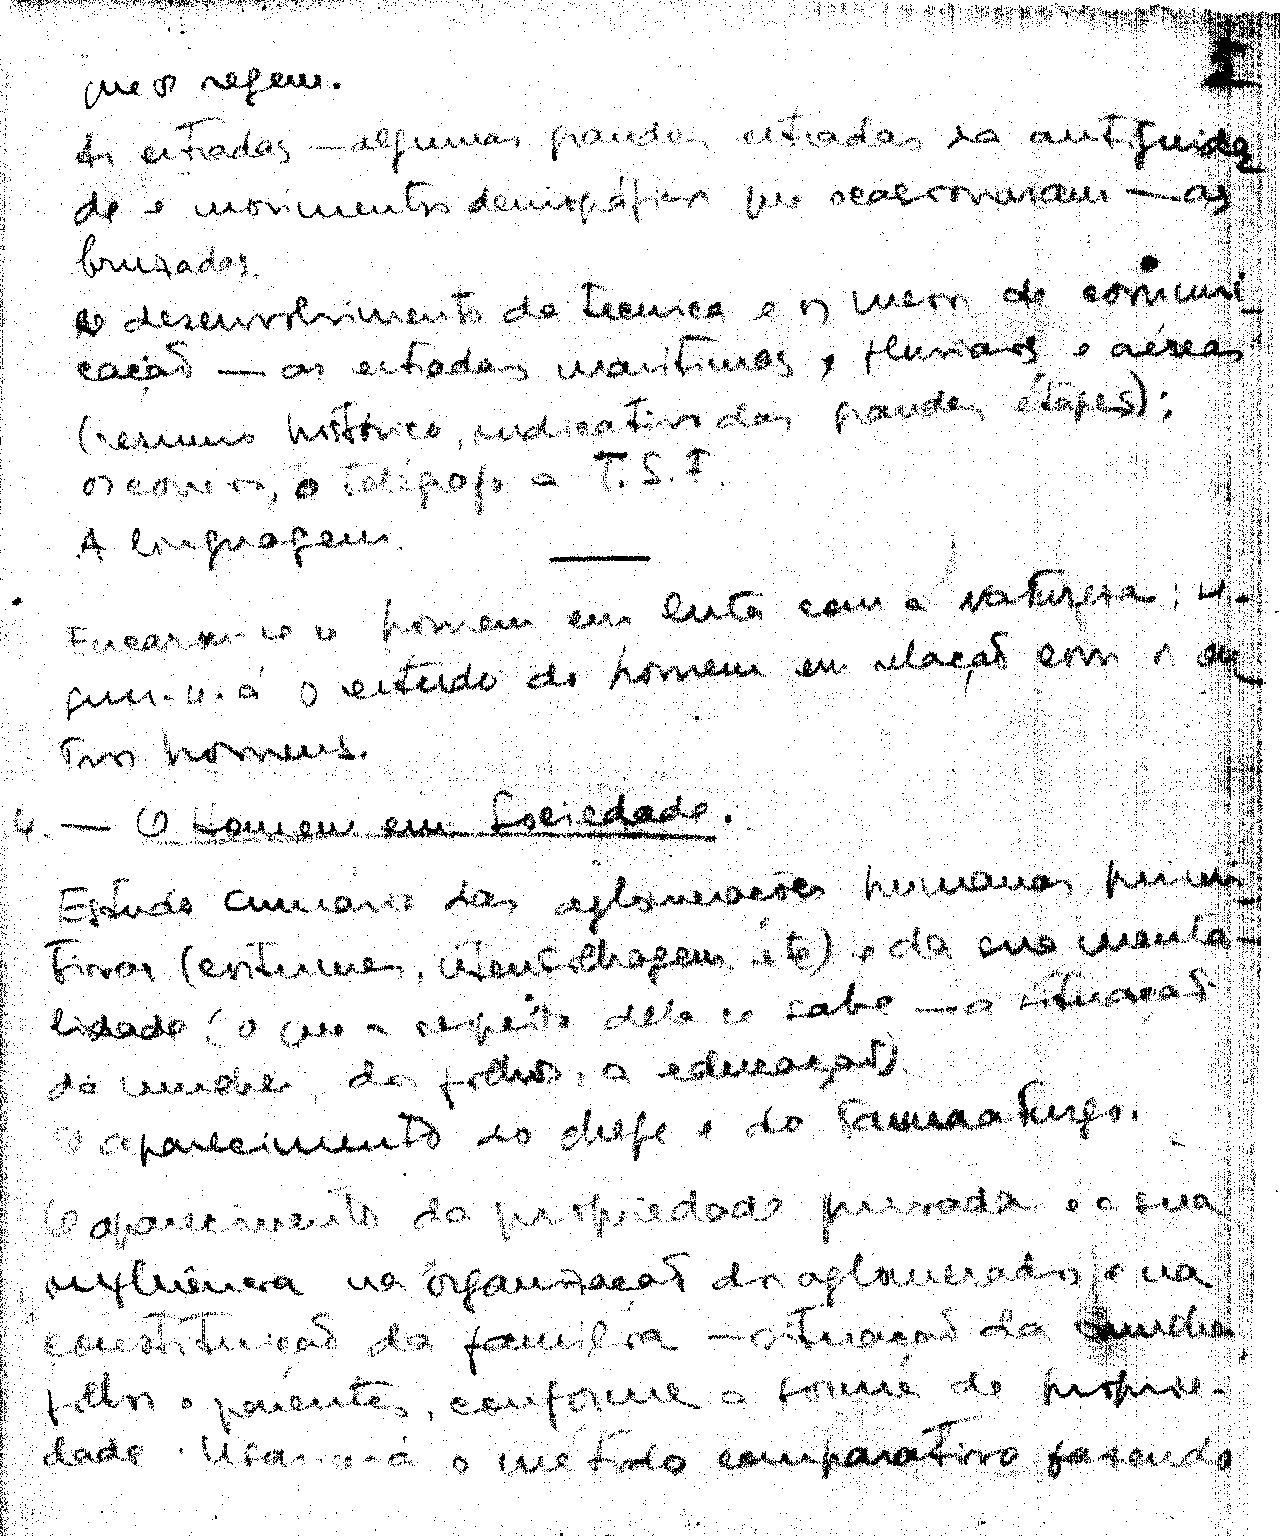 que os regem.
As estradas — algumas grandes estradas na antiguida
de e movimentos demográficos que ocasionaram — as
cruzadas.
O desenvolvimento da técnica e os meios de comuni-
cação — as estradas marítimas, fluviais e aéreas
(resumo histórico, indicativo das grandes étapes);
os correios, o telégrafo a T.S.F.
A linguagem.
Encarou-se o homem em luta com a natureza; se-
guir-se-á o estudo do homem em relação com os ou
tros homens.
4. — O Homem em Sociedade.
Estudo sumário das aglomerações humanas primi-
tivas (costumes, utensilhagem, etc) e da sua menta-
lidade (o que a respeito dela se sabe — a situação
da mulher, dos filhos, a educação).
O aparecimento do chefe e do taumaturgo.
O aparecimento da propriedade privada e a sua
influência na organização dos aglomerados e na
constituição da família — situação da mulher,
filhos e parentes, conforme a forma de proprie-
dade. Usar-se-á o método comparativo fazendo